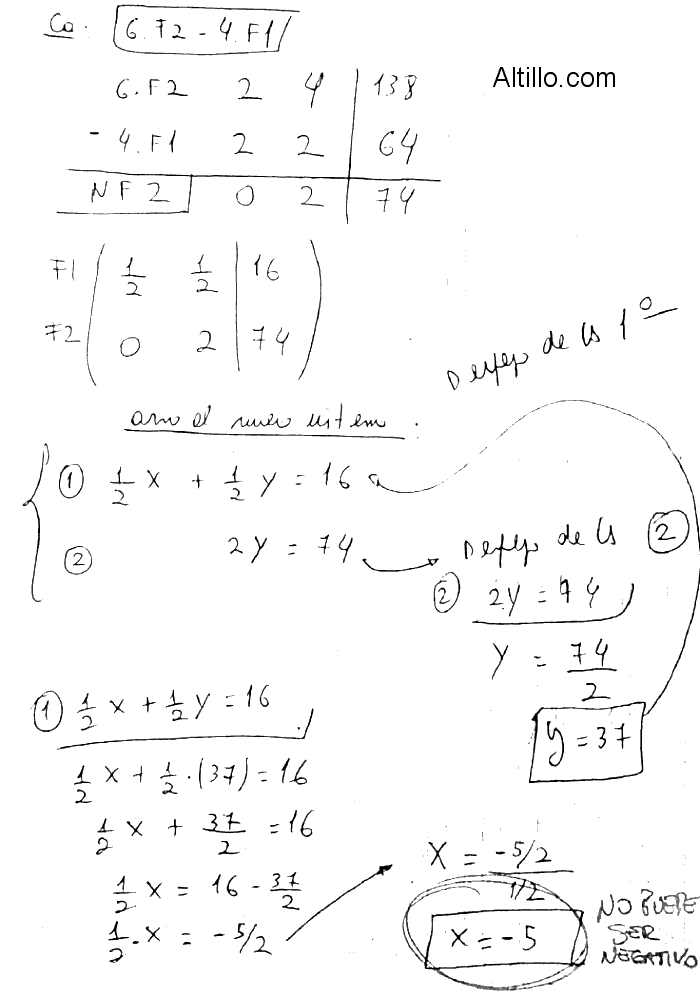 Co. 6.F2 - 4.F1
Altillo.com
6.F2 2 4 | 138
- 4.F1 2 2 | 64
NF2 0 2 | 74
F1 ( 1/2 1/2 | 16 )
F2 ( 0 2 | 74 )
Despejo de la 1º
armo el nuevo sistema:
① 1/2 x + 1/2 y = 16
② 2y = 74
Despejo de la ②
② 2y = 74
y = 74/2
y = 37
① 1/2 x + 1/2 y = 16
1/2 x + 1/2 . (37) = 16
1/2 x + 37/2 = 16
1/2 x = 16 - 37/2
1/2 . x = - 5/2
x = -5/2 / 1/2
x = - 5
NO PUEDE
SER
NEGATIVO